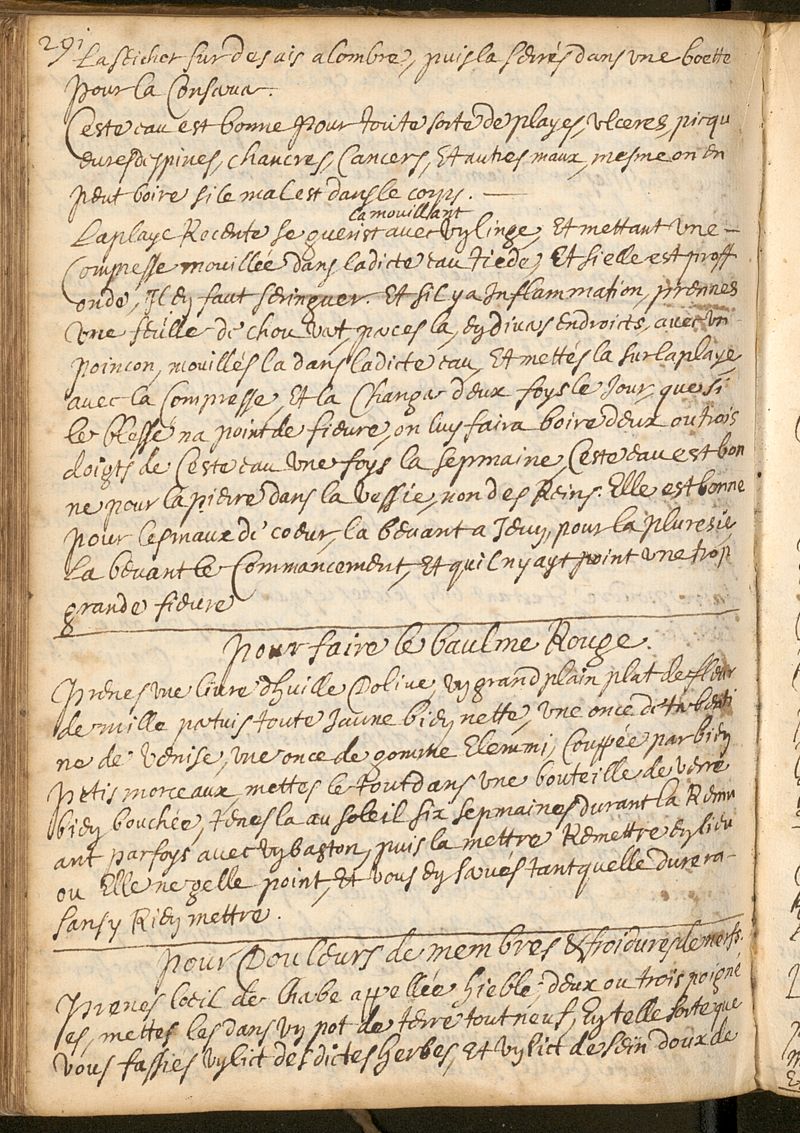 291
La seicher sur des ais a lombre, puis la serrés dans une boette
pour la Consarar.
Ceste eau est bonne pour toute sorte de playes, ulceres, picqu
eures despines, chancres, Cancers, Et autres maux, mesme on en
peut boire si le mal est dans le corps.
la mouillant
La playe Recente se guerist avec ung linge, Et mettant une
Compresse mouillée dans ladicte eau tiede, Et si elle est proff
onde, Il en faut seringuer. Et sil y a Inflammation, prennes
une feulle de chou vert, perces la, en divers endroicts, avec un
poincon, mouillés la dans ladicte eau, Et mettés la sur la playe,
avec la Compresse, Et la Changer deux foys le Jour, que si
le blessé na point de fievre, on luy faira boire deux ou trois
doigts de Ceste eau une foys la sepmaine, Ceste eau est bon
ne pour la pierre dans la vessie, non des Reins. Elle est bonne
pour les maux de coeur, la beuvant a Jeun, pour la pluresie
La beuvant le Commancement, Et quil ny ayt point une trop
grande fievre
Pour faire le baulme Rouge.
Prenes une livre dhuille Dolive, ung grand plain plat de fleur
de mille pertuis toute Jaune bien nette, une once de terbenti
ne de Venise, une once de gomme Elemmi, Couppée par bien
petis morceaux, mettes le tout dans une bouteille de verre
bien bouchée, tenes la au soleil six sepmaines durant la Remu
ant par foys avec ung baston, puis la mettre Remettre en lieu
ou Elle ne gelle point, Et vous en servés tant quelle durera
sans y Rien mettre.
Pour Douleurs de membres & froidures
Prenes loeil de lherbe appellée hieble, deux ou trois poigné
es, mettes les dans ung pot de terre tout neuf, En telle sorte que
vous fassies ung lict desdictes herbes, Et ung lict de sein doux de